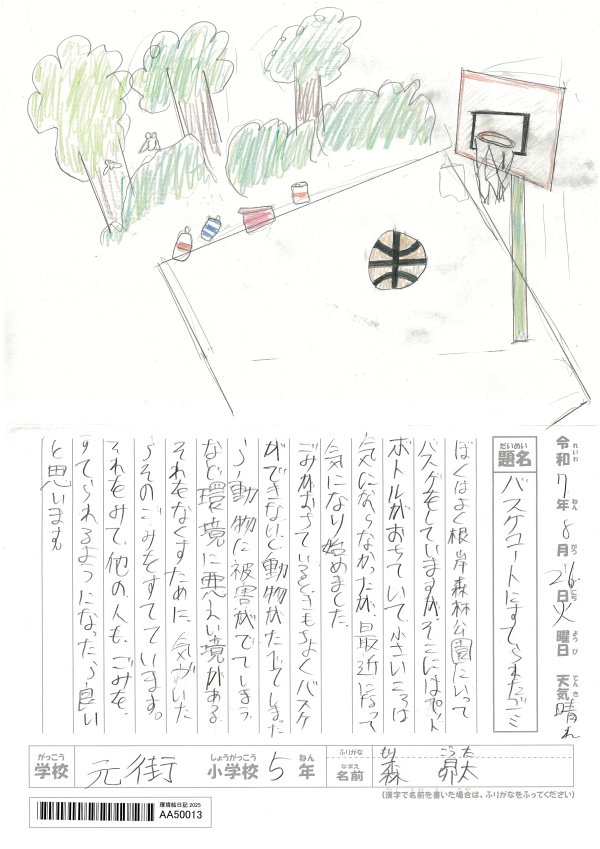 令和7年8月26日火曜日 天気晴れ
題名 バスケコートにすてられたゴミ
ぼくはよく根岸森林公園にいって
バスケをしていますが、そこにはペット
ボトルがおちていて小さいころは
気にならなかったが、最近になって
気になり始めました。
ごみがおちているときもちよくバスケ
ができないし動物がたべてしまった
ら動物に被害がでてしまう
など環境に悪えい境がある
それをなくすために、気づいた
らそのごみをすてています。
それをみて他の人も、ごみを
すてられるようになったら良い
と思います。
がっこう 学校 元街 しょうがっこう 小学校 5 ねん 年
ふりがな もり こうた
なまえ 名前 森 昴太
(漢字で名前を書いた場合は、ふりがなをふってください)
環境絵日記 2025
AA50013